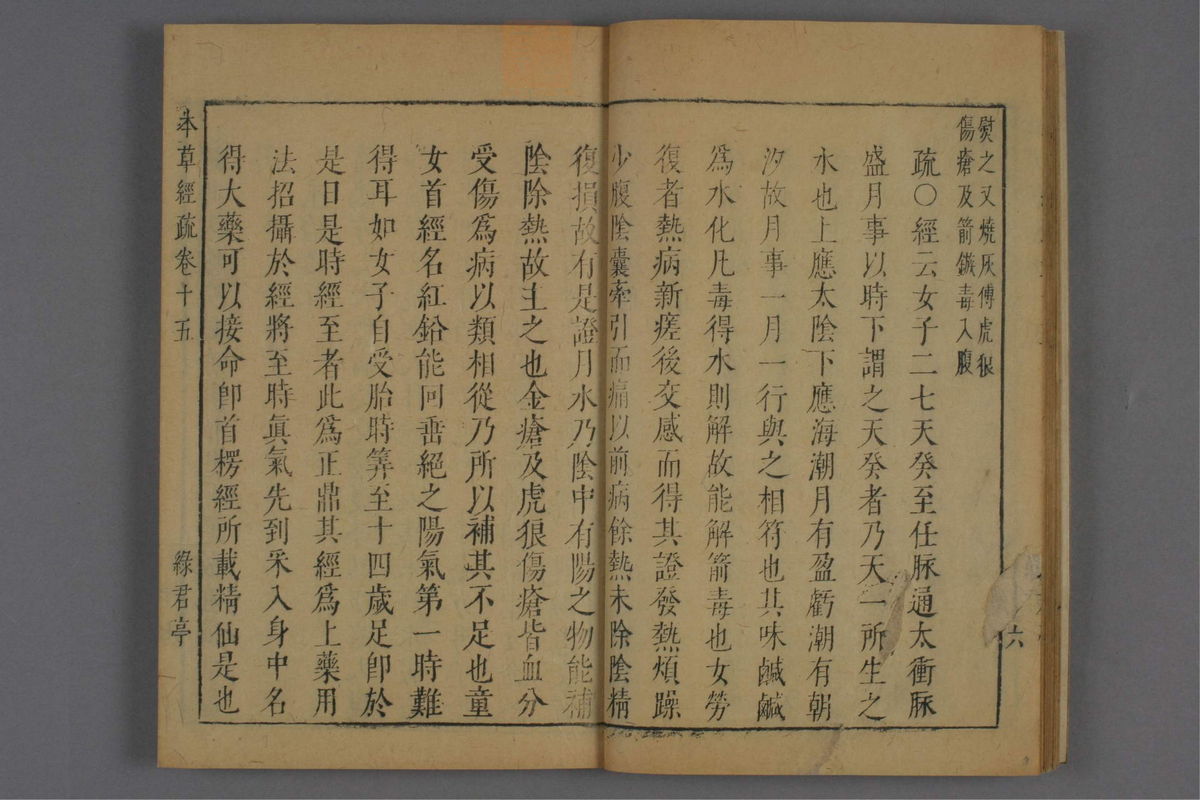 熨之又燒灰傅虎狼
傷瘡及箭鏃毒入腹
疏○經云女子二七天癸至任脉通太衝脉
盛月事以時下謂之天癸者乃天一所生之
水也上應太陰下應海潮月有盈虧潮有朝
汐故月事一月一行與之相符也其味鹹鹹
爲水化凡毒得水則解故能解箭毒也女勞
復者熱病新瘥後交感而得其證發熱煩躁
少腹陰囊牽引而痛以前病餘熱未除陰精
復損故有是證月水乃陰中有陽之物能補
陰除熱故主之也金瘡及虎狼傷瘡皆血分
受傷爲病以類相從乃所以補其不足也童
女首經名紅鉛能回垂絕之陽氣第一時難
得耳如女子自受胎時筭至十四歲足卽於
是日是時經至者此爲正鼎其經爲上藥用
法招攝於經將至時眞氣先到采入身中名
得大藥可以接命卽首楞經所載精仙是也
本草經疏卷十五
綠君亭
六